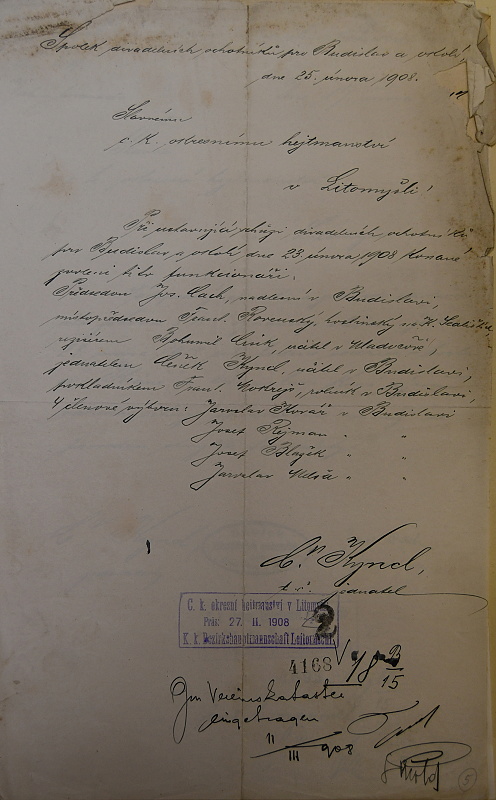 Spolek divadelních ochotníků pro Budislav a okolí,
dne 25. února 1908.
Slavnému
c. k. okresnímu hejtmanství
v Litomyšli!
Při ustavující schůzi divadelních ochotníků
pro Budislav a okolí dne 23. února 1908 konané
zvoleni tito funkcionáři:
Předsedou Jos. Cach, nadlesní v Budislavi,
místopředsedou Frant. Rovenský, hostinský v H.
Bohumil učitel v
jednatelem Kyncl, učitel v Budislavi,
pokladníkem Frant. rolník v Budislavi,
4 členové výboru: Jaroslav Kovář v Budislavi
Josef Rejman " "
Josef Blažek " "
Jaroslav " "
Kyncl,
t. č. jednatel
C. k. okresní hejtmanství v Litomyšli
Präs: 27. II. 1908 2
K. k. Bezirkshauptmannschaft Leitomischl
4168 /8 B/15
Im Vereinskataster
eingetragen
11/III 908
5